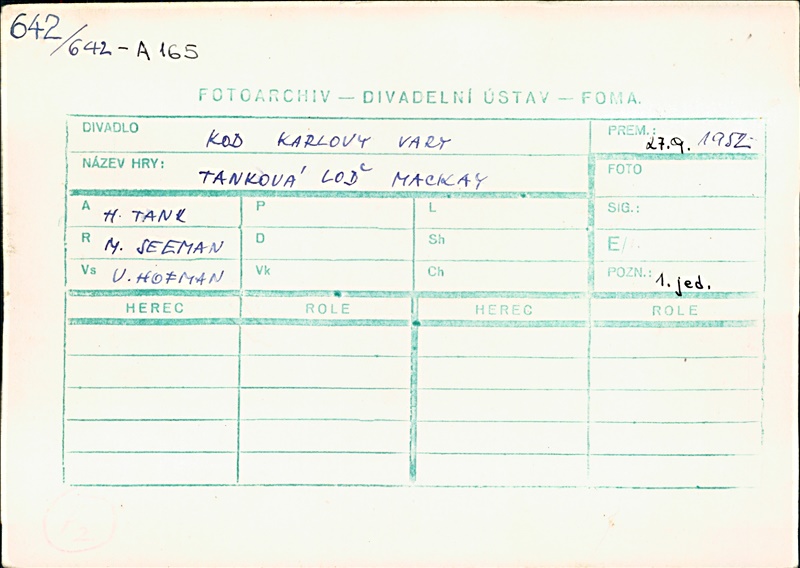 642/642-A 165
FOTOARCHIV — DIVADELNÍ ÚSTAV — FOMA.
DIVADLO KOD KARLOVY VARY PREM.: 27.9. 1952
NÁZEV HRY: TANKOVÁ LOĎ MACKAY FOTO
A H. TANK P L SIG.:
R M. SEEMAN D Sh E/
Vs V. HOFMAN Vk Ch POZN.: 1. jed.
HEREC ROLE HEREC ROLE